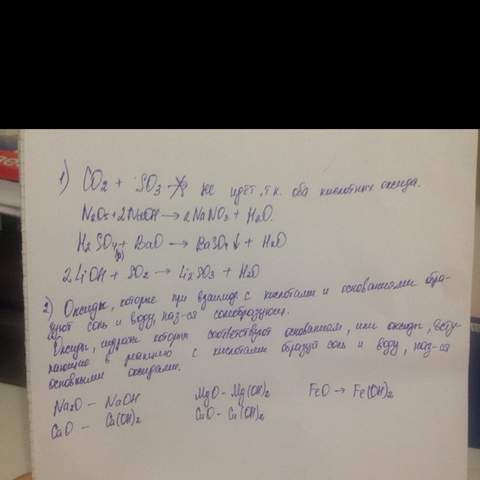 1) CO₂ + SO₃ ↛ не идёт, т.к. оба кислотных оксида.
N₂O₅ + 2NaOH → 2NaNO₃ + H₂O.
H₂SO₄(р) + BaO → BaSO₄↓ + H₂O
2LiOH + SO₂ → Li₂SO₃ + H₂O
2) Оксиды, которые при взаимод. с кислотами и основаниями обра-
зуют соль и воду, наз-ся солеобразующ.
Оксиды, гидраты которых соответствуют основаниям, или оксиды, всту-
пающие в реакцию с кислотами образуя соль и воду, наз-ся
основными оксидами.
Na₂O – NaOH MgO – Mg(OH)₂ FeO → Fe(OH)₂
CaO – Ca(OH)₂ CuO – Cu(OH)₂